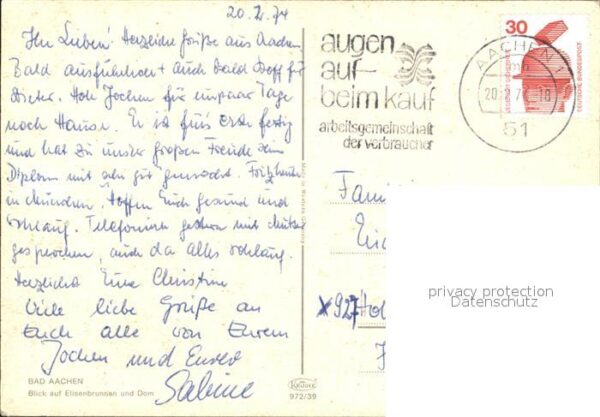 20.2.74
Ihr Lieben! Herzliche Grüße aus Aachen
Bald ausführlicher + auch bald Stoff für
Dieter. Hole Jochen für ein paar Tage
nach Hause. Er ist fürs erste fertig
und hat zu unser großen Freude sein
Diplom mit sehr gut gemacht. Fritz heute
in München. Hoffen Euch gesund und
Telefonisch gestern mit
gesprochen, auch da alles
Herzlichst Eure Christine
Viele liebe Grüße an
Euch alle von Eurem
Jochen und Eurer
Sabine
BAD AACHEN
Blick auf Elisenbrunnen und Dom
augen
auf-
beim kauf
arbeitsgemeinschaft
der verbraucher
AACHEN 1
20.2.74-18
51
30
DEUTSCHE BUNDESPOST
Fam
927
KRÜGER
972/39
privacy protection
Datenschutz